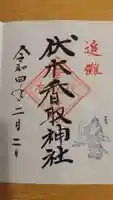 追儺
伏木香取神社
令和四年二月二日